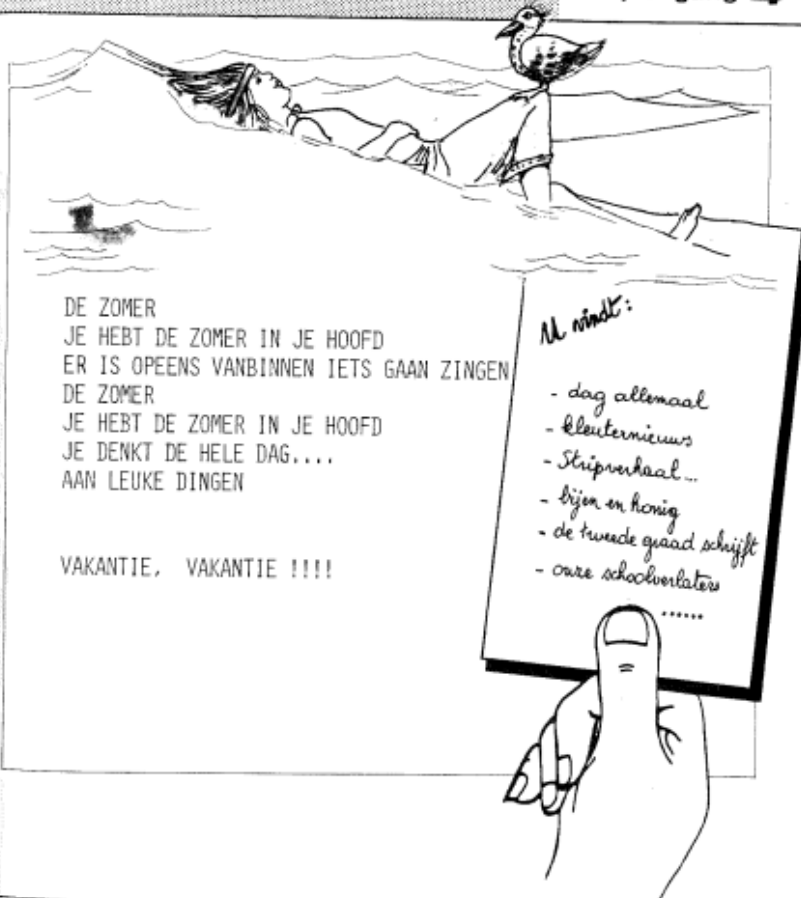 DE ZOMER
JE HEBT DE ZOMER IN JE HOOFD
ER IS OPEENS VANBINNEN IETS GAAN ZINGEN
DE ZOMER
JE HEBT DE ZOMER IN JE HOOFD
JE DENKT DE HELE DAG....
AAN LEUKE DINGEN
VAKANTIE, VAKANTIE !!!!
U vindt:
- dag allemaal
- kleuternieuws
- Stripverhaal...
- bijen en honig
- de tweede graad schrijft
- onze schoolverlaters
......